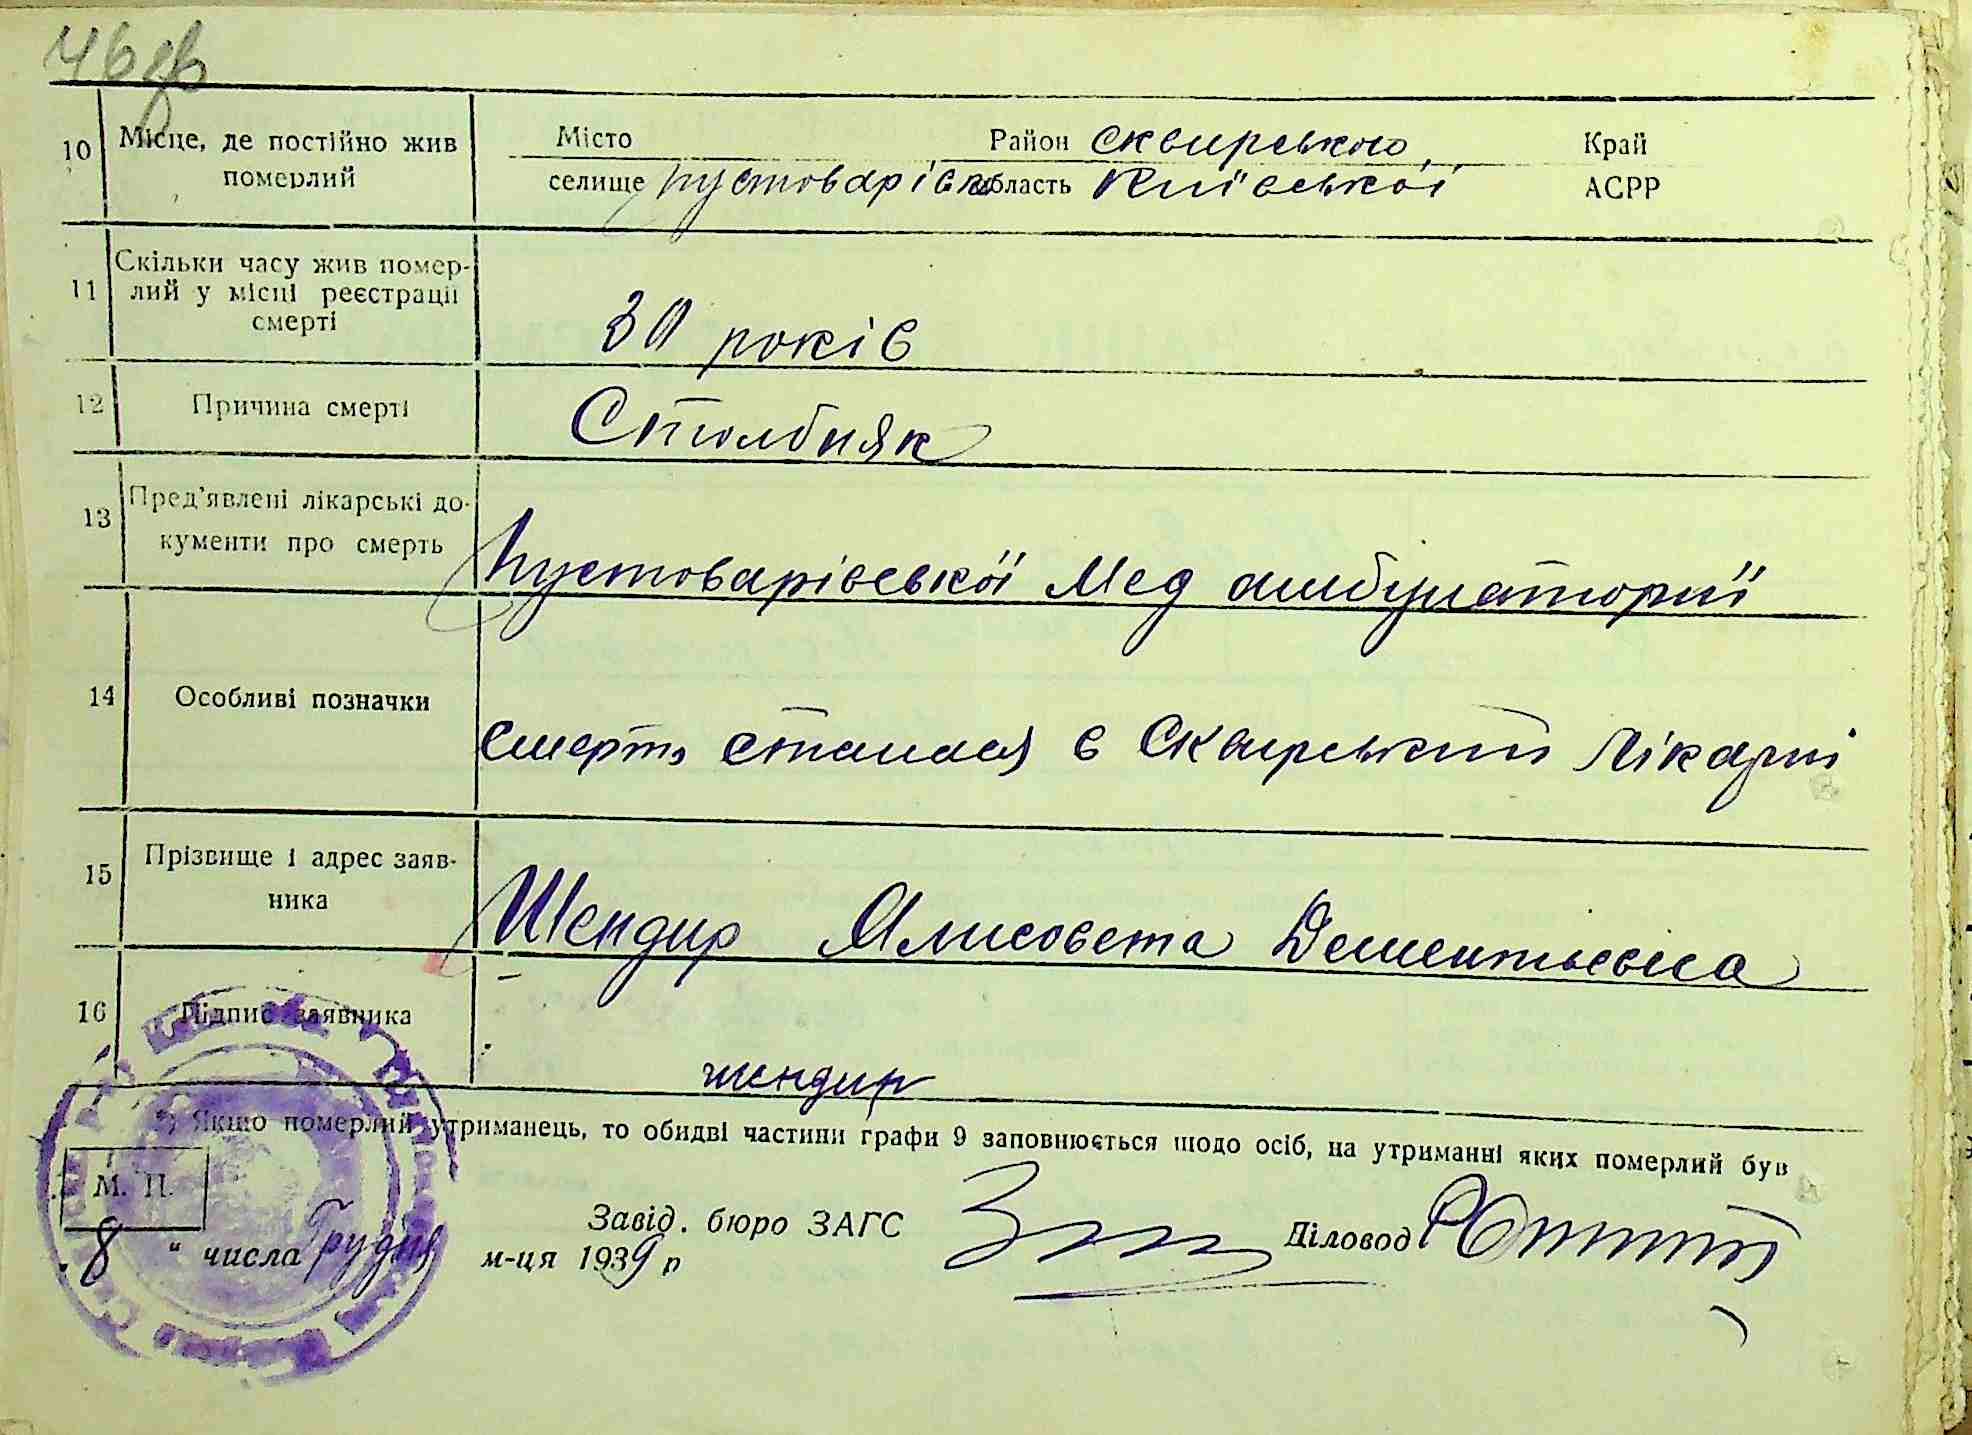 46 зв
10 Місце, де постійно жив померлий
Місто Район Сквирського Край
селище Пустоварівка область Київської АСРР
11 Скільки часу жив помер-
лий у місці реєстрації
смерті
30 років
12 Причина смерті Столбняк
13 Пред'явлені лікарські до-
кументи про смерть
Пустоварівської Мед амбулаторії
14 Особливі позначки
смерть сталася в Сквирський лікарні
15 Прізвище і адрес заяв-
ника
Шендир Ялисовета Дементьевна
16 Підпис заявника
шендир
*) Якщо померлий утриманець, то обидві частини графи 9 заповнюється щодо осіб, на утриманні яких померлий був
М. П.
Завід. бюро ЗАГС Діловод
8 " числа Грудня м-ця 1939 р